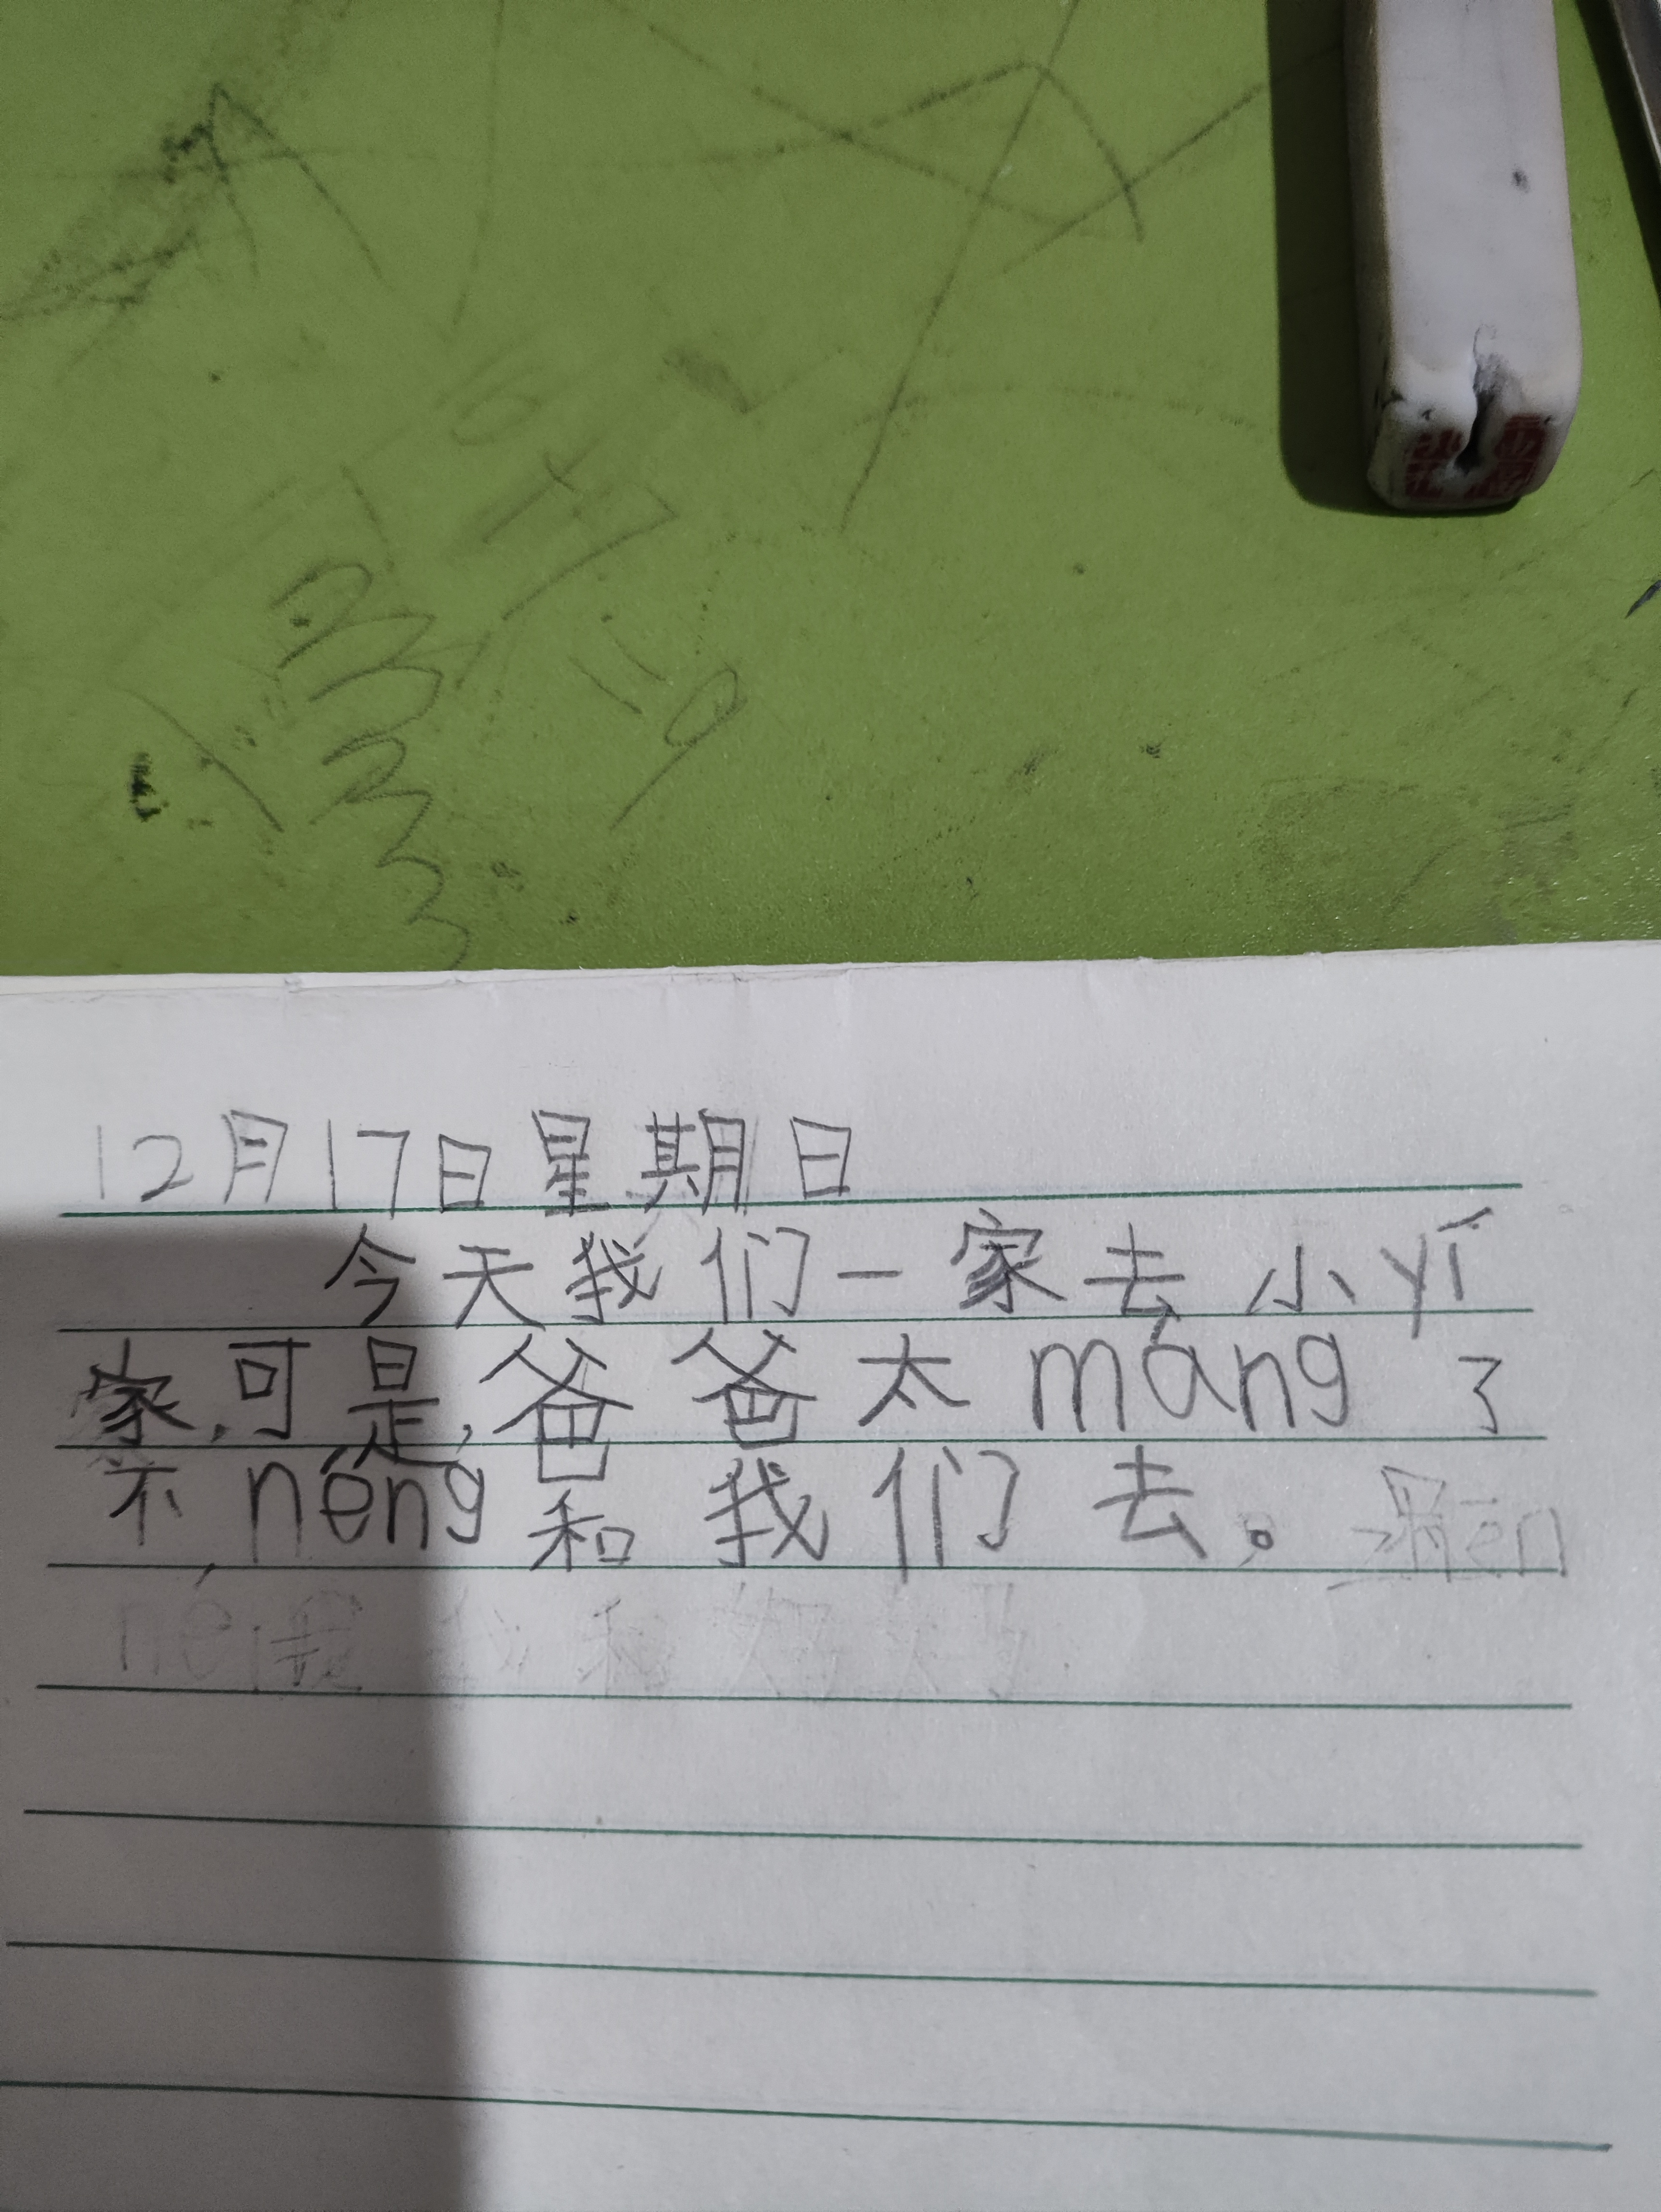 12月17日星期日
今天我们一家去小yí
家,可是,爸爸太máng了
不,néng和我们去。